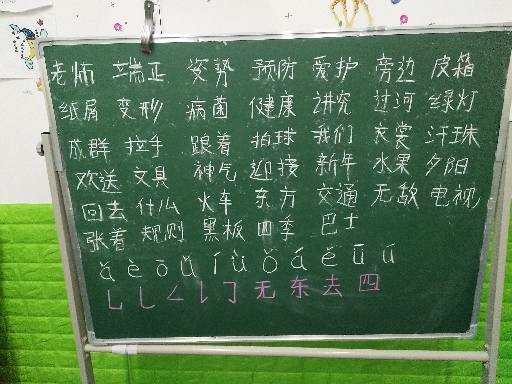 老师 端正 姿势 预防 爱护 旁边 皮箱
纸屑 变形 病菌 健康 讲究 过河 绿灯
成群 拉手 跟着 拍球 我们 衣裳 汗珠
欢送 文具 神气 迎接 新年 水果 夕阳
回去 什么 火车 东方 交通 无敌 电视
张着 规则 黑板 四季 巴士
ǎ è ō ǔ í ù ǒ á ě ū ú
无 东 去 四